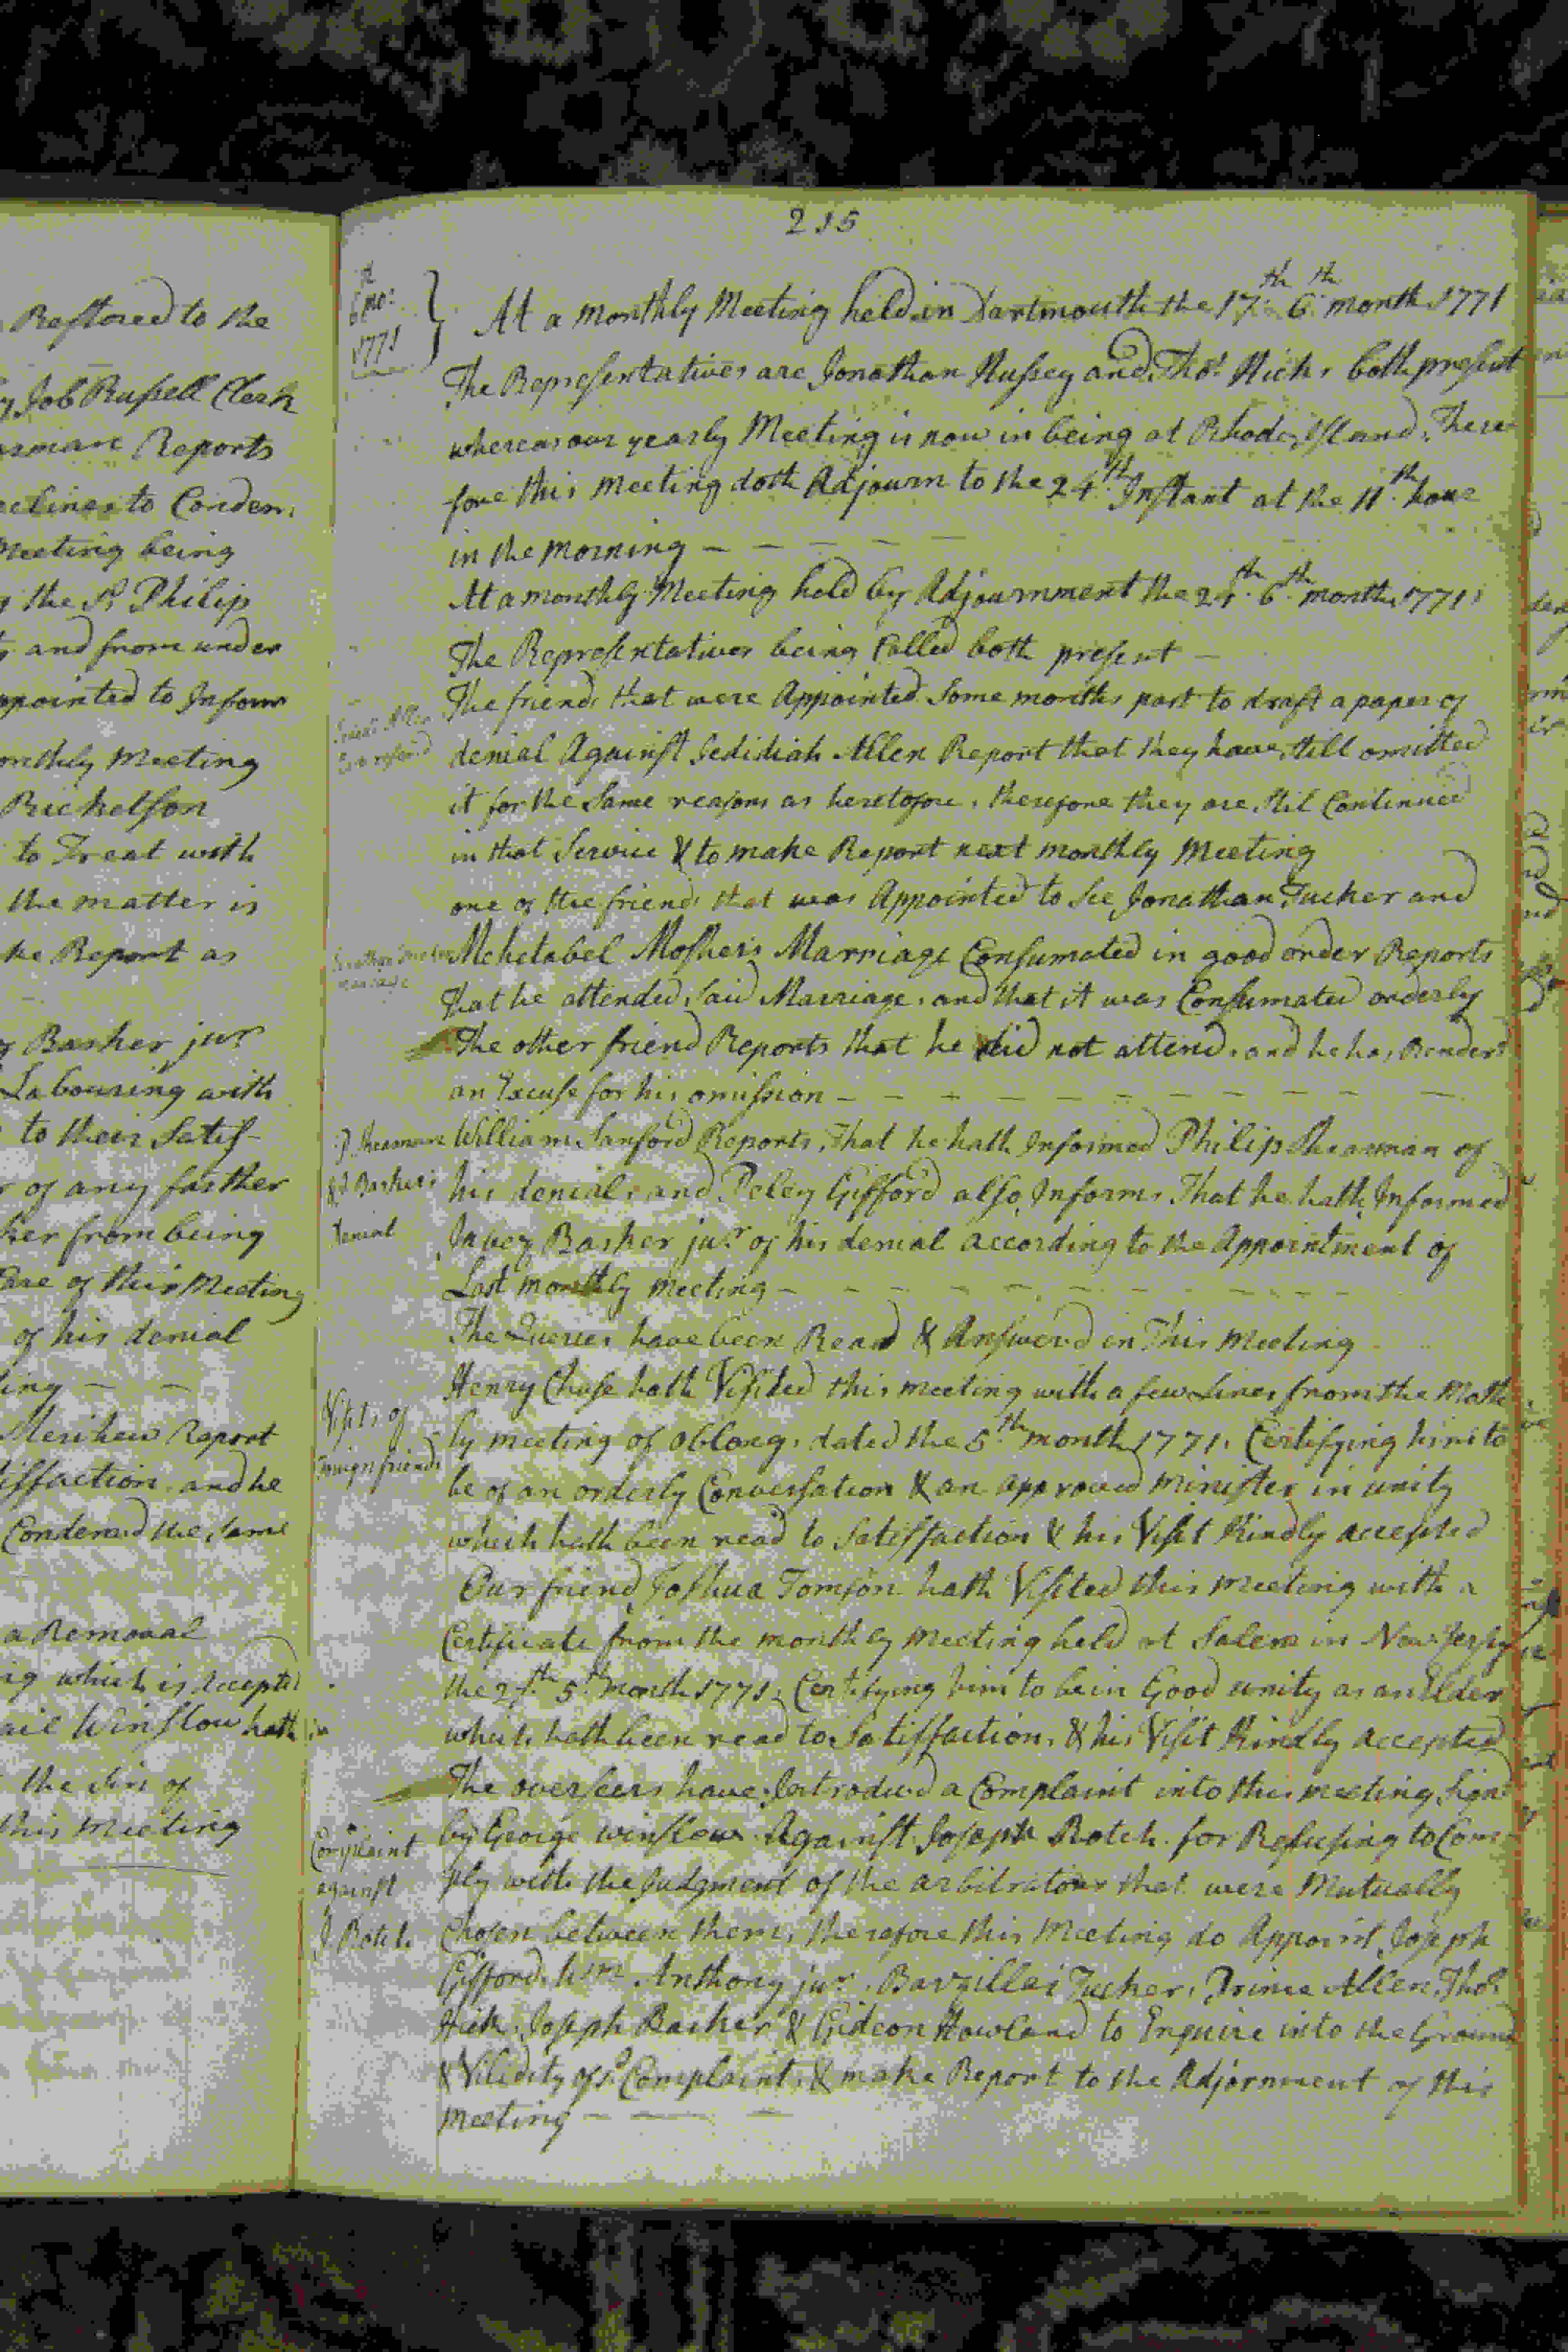 Restored to the
Job Russell Clerk
Reports
to Conden,
Meeting being
the Sd Philip
and from under
to Inform
Meeting
Rickelson
to Treat with
the matter is
Report as
Barker junr
Labouring with
to their Satif-
of any farther
from being
of this Meeting
of his denial
Merihew Report
and he
Condemd the Same
a Removal
which is Accepted
Winslow hath
the Sin of
this meeting
215
6 mo:
1771
At a monthly Meeting held in Dartmouth the 17th 6th month 1771
The Representatives are Jonathan Hussey and Thos Hicks both present
whereas our yearly Meeting is now in being at Rhode Island, There=
fore this meeting doth Adjourn to the 24th Instant at the 11th hour
in the morning
At a monthly Meeting held by Adjournment the 24th 6th month 1771
The Representatives being Called both present
The friends that were Appointed Some months past to draft a paper of
denial Against Jedidiah Allen Report that they have still omitted
it for the Same reasons as heretofore, therefore they are Stil Continued
in that Service & to make Report next monthly Meeting
one of the friends that was Appointed to See Jonathan Tucker and
Mehetabel Moshers Marriage Consumated in good order Reports
that he attended Said Marriage, and that it was Consumated orderly
The other friend Reports that he did not attend, and he has Renderd
an Excuse for his omission
P. Shearman
& J Barkers
denial
William Sanford Reports, That he hath Informed Philip Shearman of
his denial, and Peleg Gifford also Informs That he hath Informed
Jabez Barker junr of his denial according to the Appointment of
Last monthly meeting
The Queries have been Read & Answerd in This meeting
Visits of
foreign friends
Henry Chase hath Visited this meeting with a few Lines from the Moth
ly meeting of oblong, dated the 5th month 1771. Certifying him to
be of an orderly Conversation & an approved minister in unity
which hath been read to Satisfaction & his Visit Kindly accepted
Our friend Joshua Tomson hath Visited this meeting with a
Certificate from the monthly meeting held at Salem in New Jersey
the 5th month 1771, Certifying him to be in Good unity as an Elder
which hath been read to Satisfaction, & his Visit Kindly accepted
Complaint
against
J. Rotch
The overseers have Introduced a Complaint into this meeting Signd
by George winslow Against Joseph Rotch for Refusing to Com=
ply with the Judgment of the arbitrators that were Mutually
Chosen between them, therefore this Meeting do Appoint Joseph
Gifford, Wm Anthony junr, Barzillai Tucker, Prince Allen, Thos
Hick, Joseph Barker & Gideon Howland to Enquire into the Ground
& Vilidity of sd Complaint, & make Report to the Adjornment of this
meeting